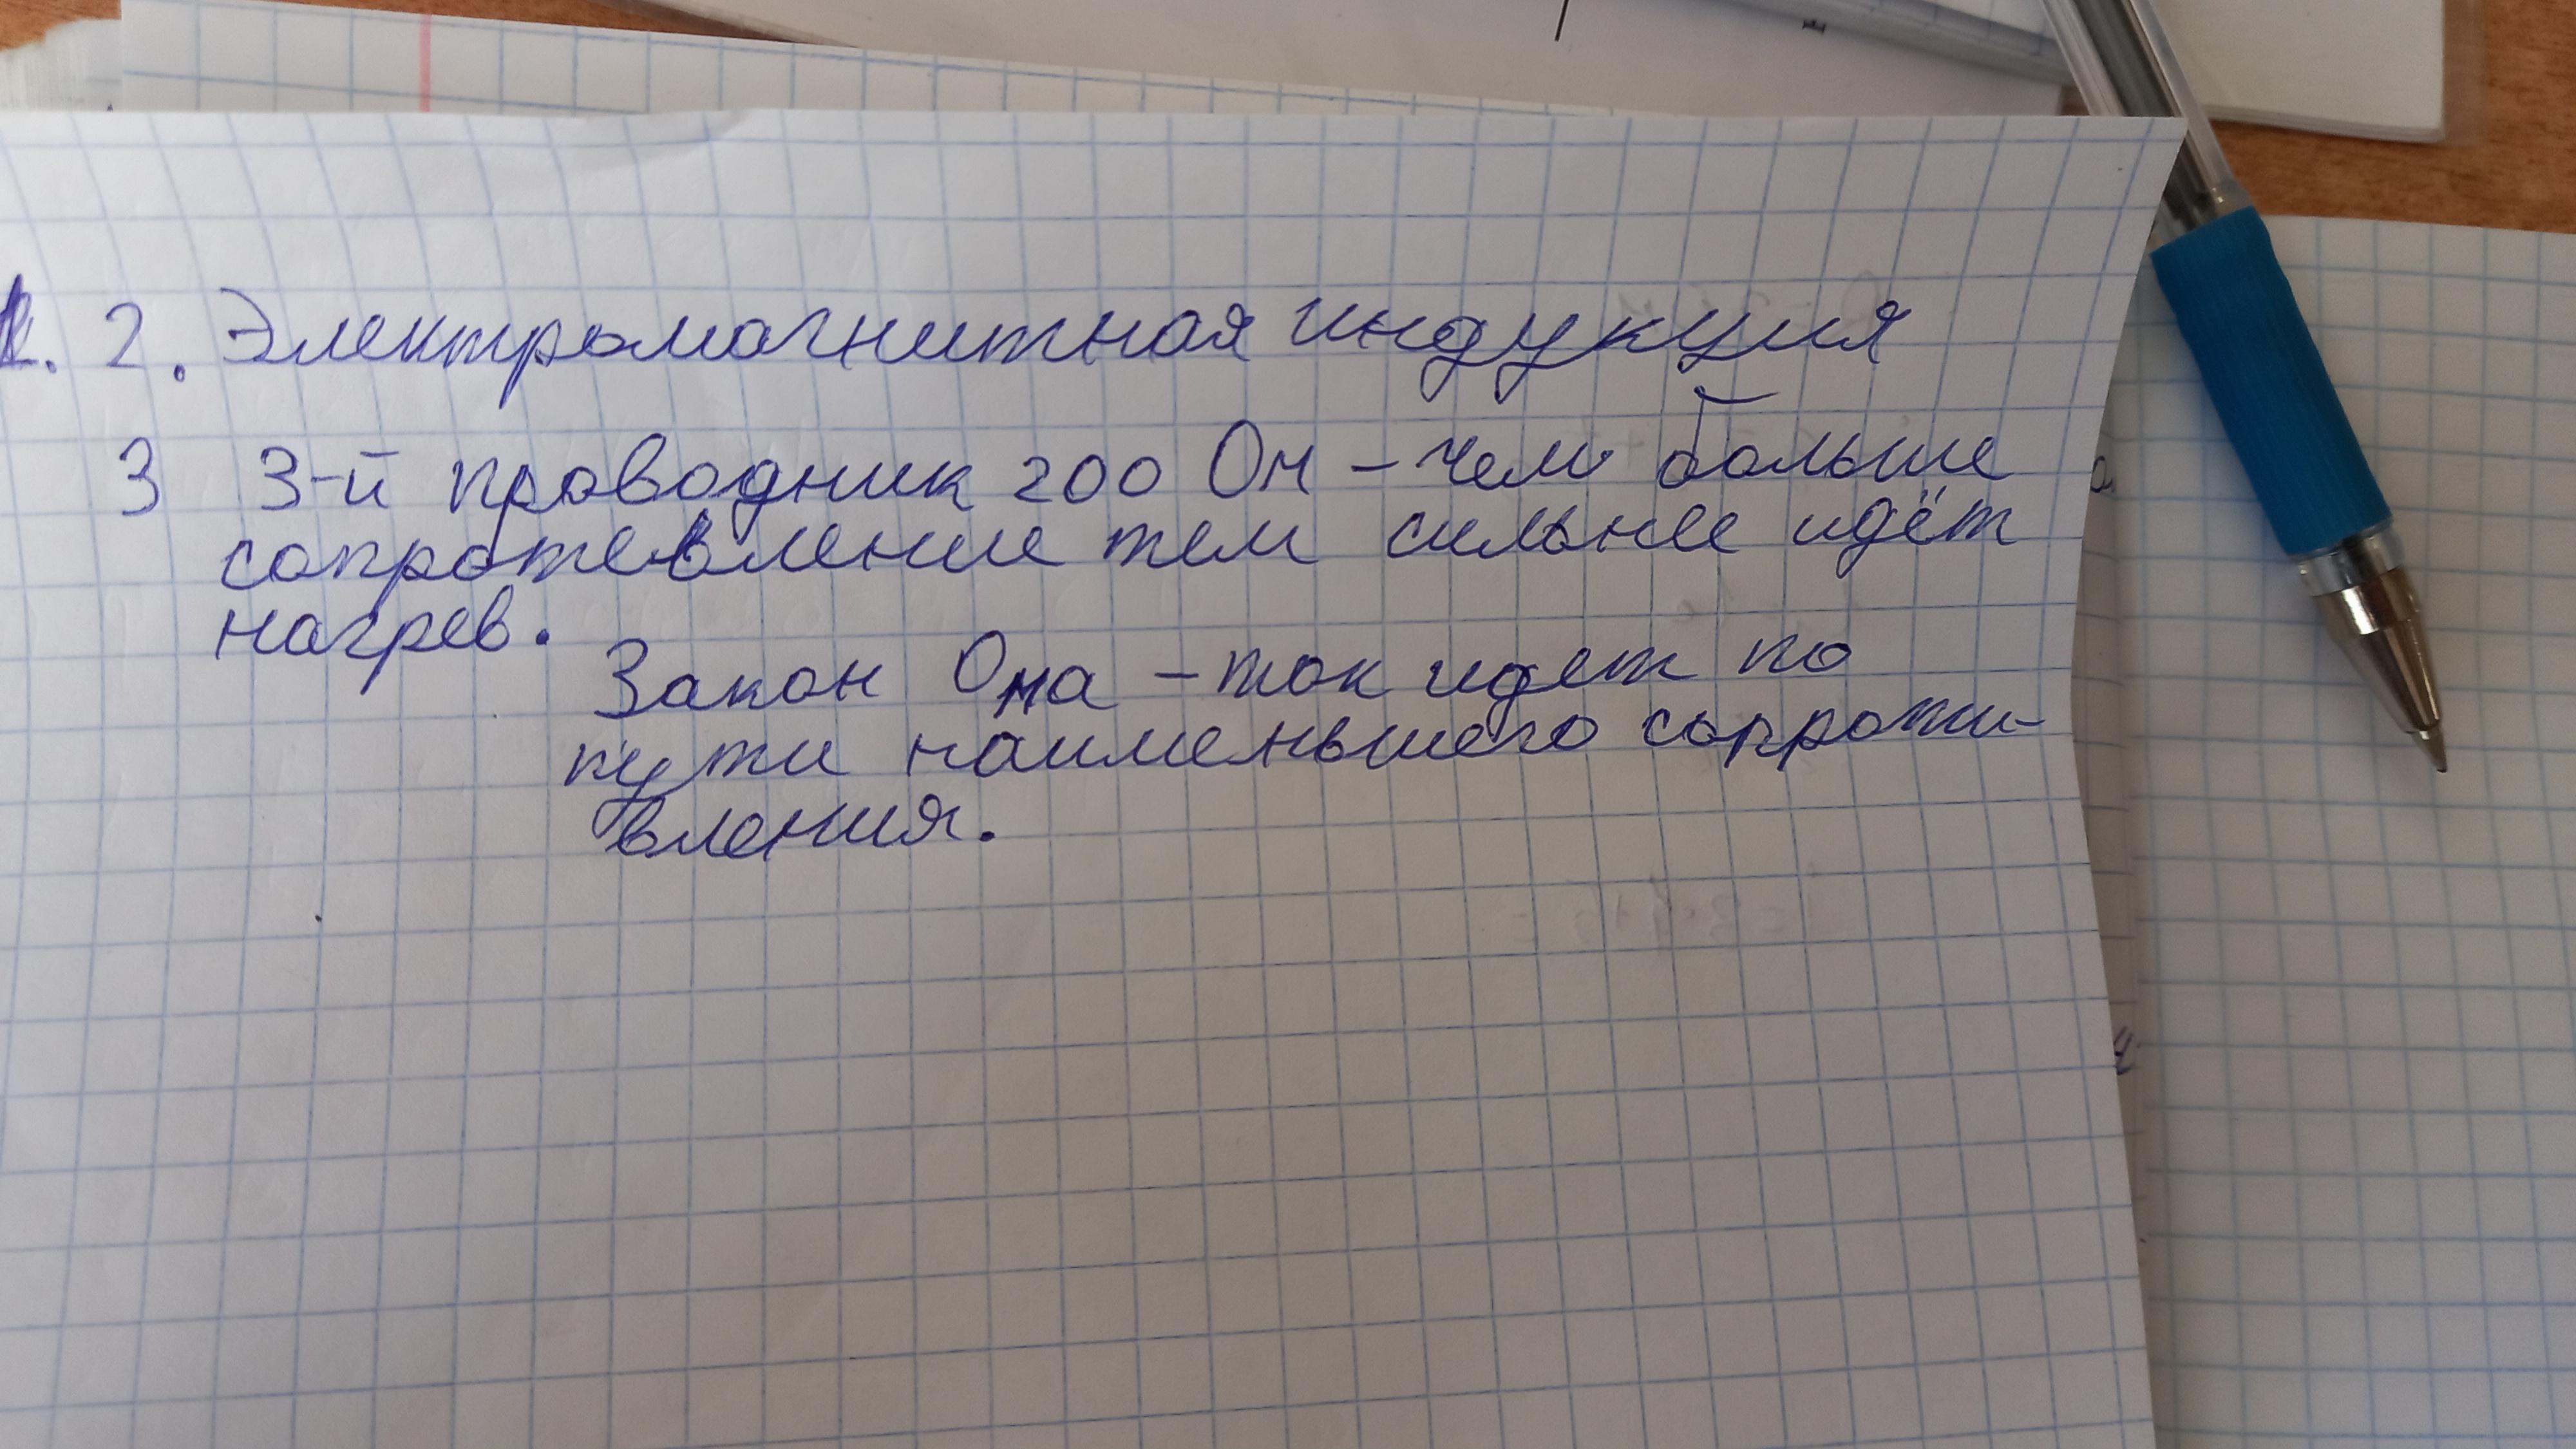 2. Электромагнитная индукция
3 3-й проводник 200 Ом - чем больше
сопротевление тем сильнее идёт
нагрев.
Закон Ома - ток идет по
пути наименьшего сопроти-
вления.